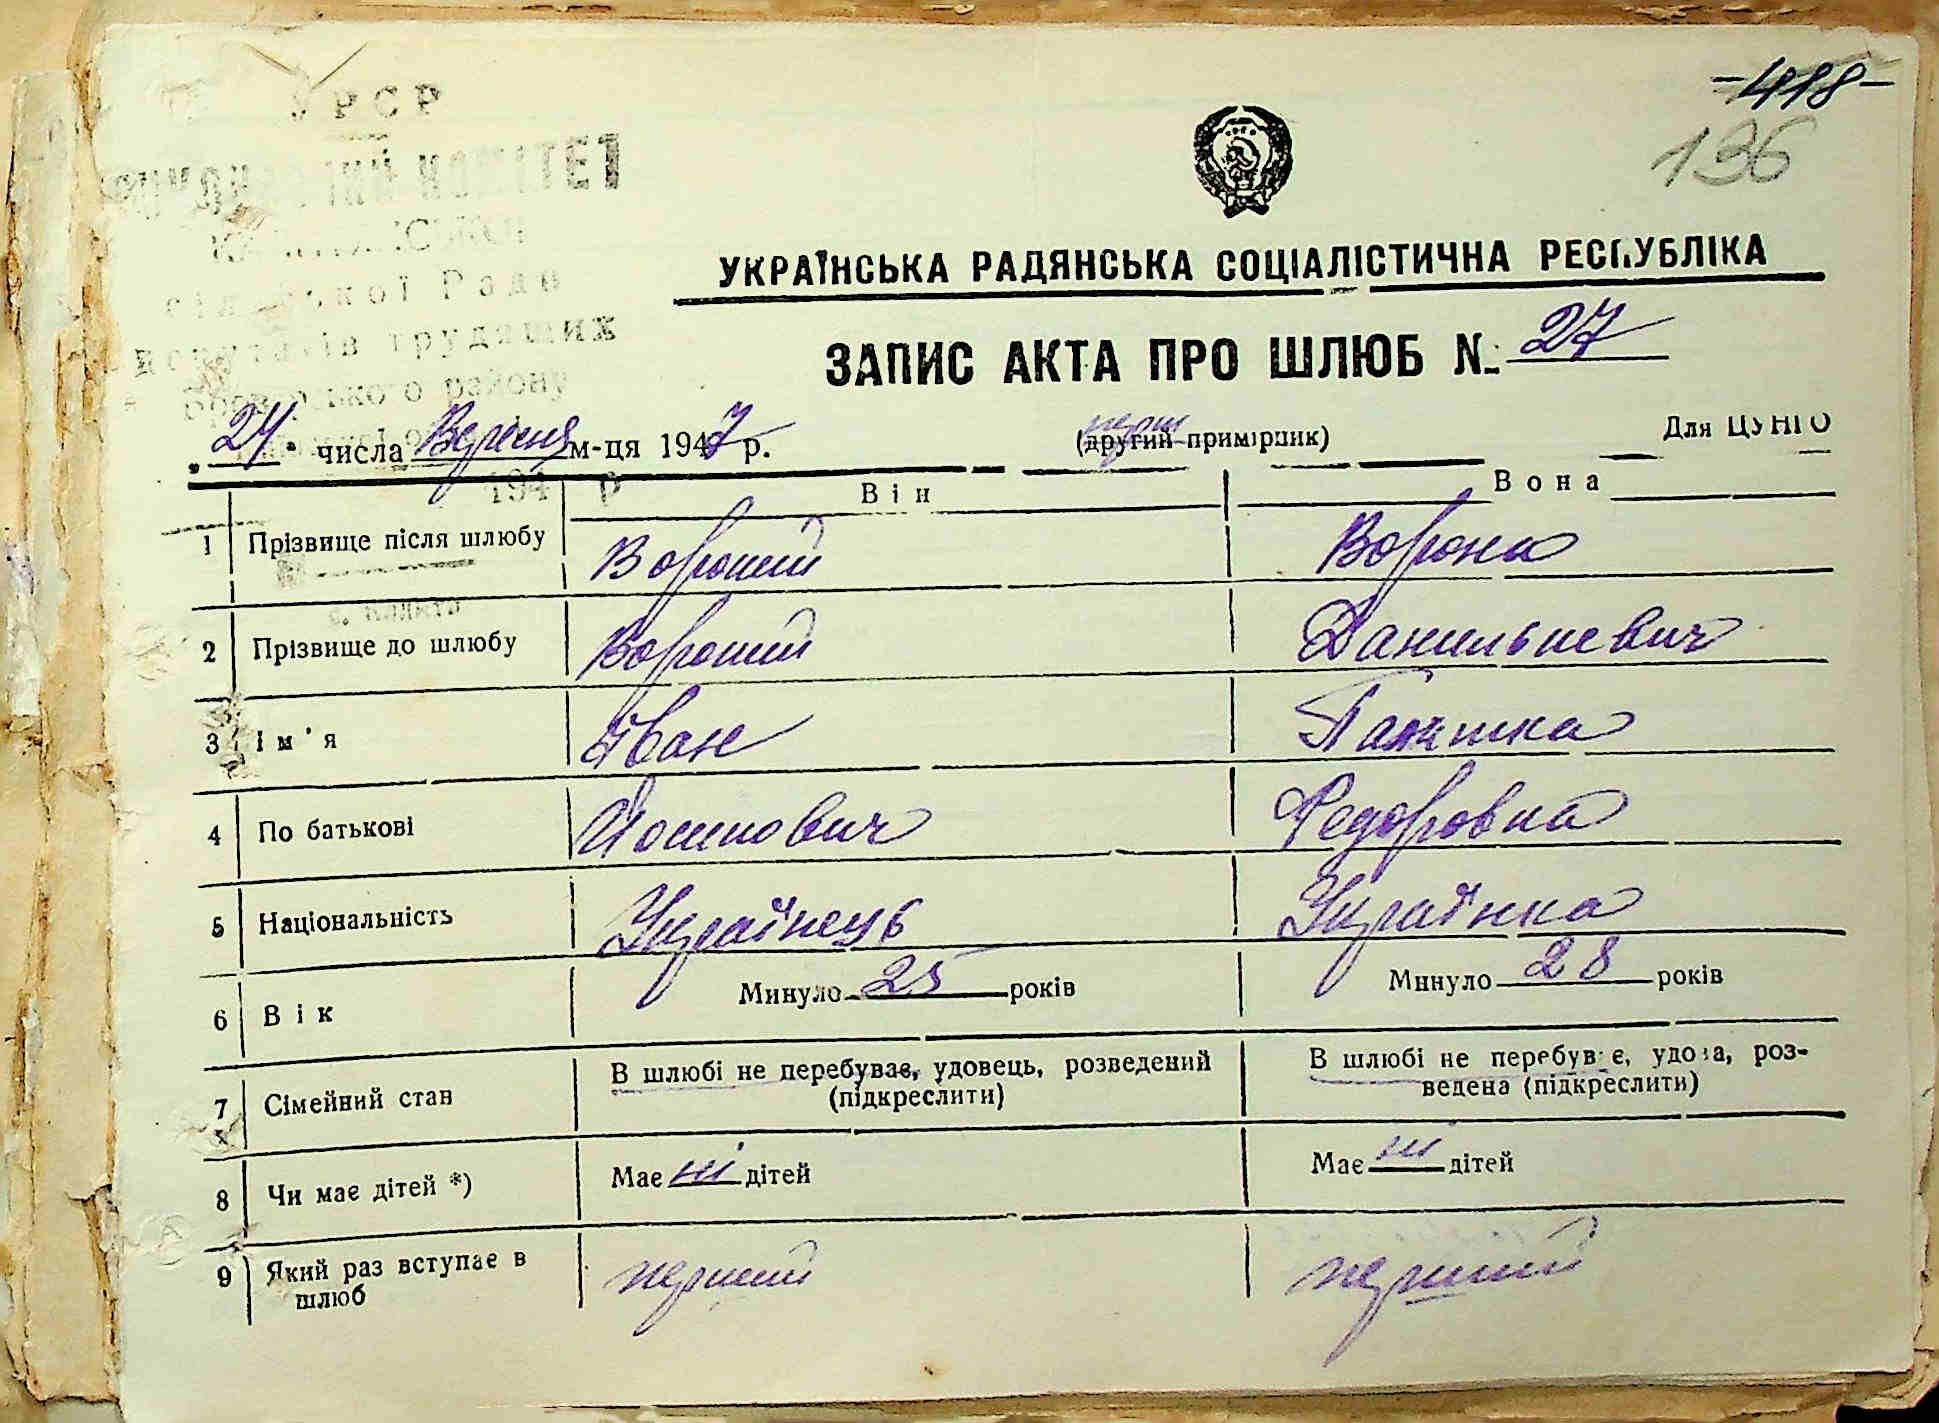 -418-
136
УРСР
ВИКОНАВЧИЙ КОМІТЕТ
сільської Ради
депутатів трудящих
Броварського району
УКРАЇНСЬКА РАДЯНСЬКА СОЦІАЛІСТИЧНА РЕСПУБЛІКА
ЗАПИС АКТА ПРО ШЛЮБ № 27
"24" числа Вересня м-ця 1947 р.
перш
(другий примірник)
Для ЦУНГО
194 р
Він Вона
1 Прізвище після шлюбу Вороний Ворона
с. Калита
2 Прізвище до шлюбу Вороний Данильневич
3 Ім'я Іван Палашка
4 По батькові Йосипович Федоровна
5 Національність Українець Українка
6 Вік Минуло 25 років Минуло 28 років
7 Сімейний стан В шлюбі не перебуває, удовець, розведений (підкреслити) В шлюбі не перебуває, удова, роз-
ведена (підкреслити)
8 Чи має дітей *) Має ні дітей Має ні дітей
9 Який раз вступає в шлюб перший перший